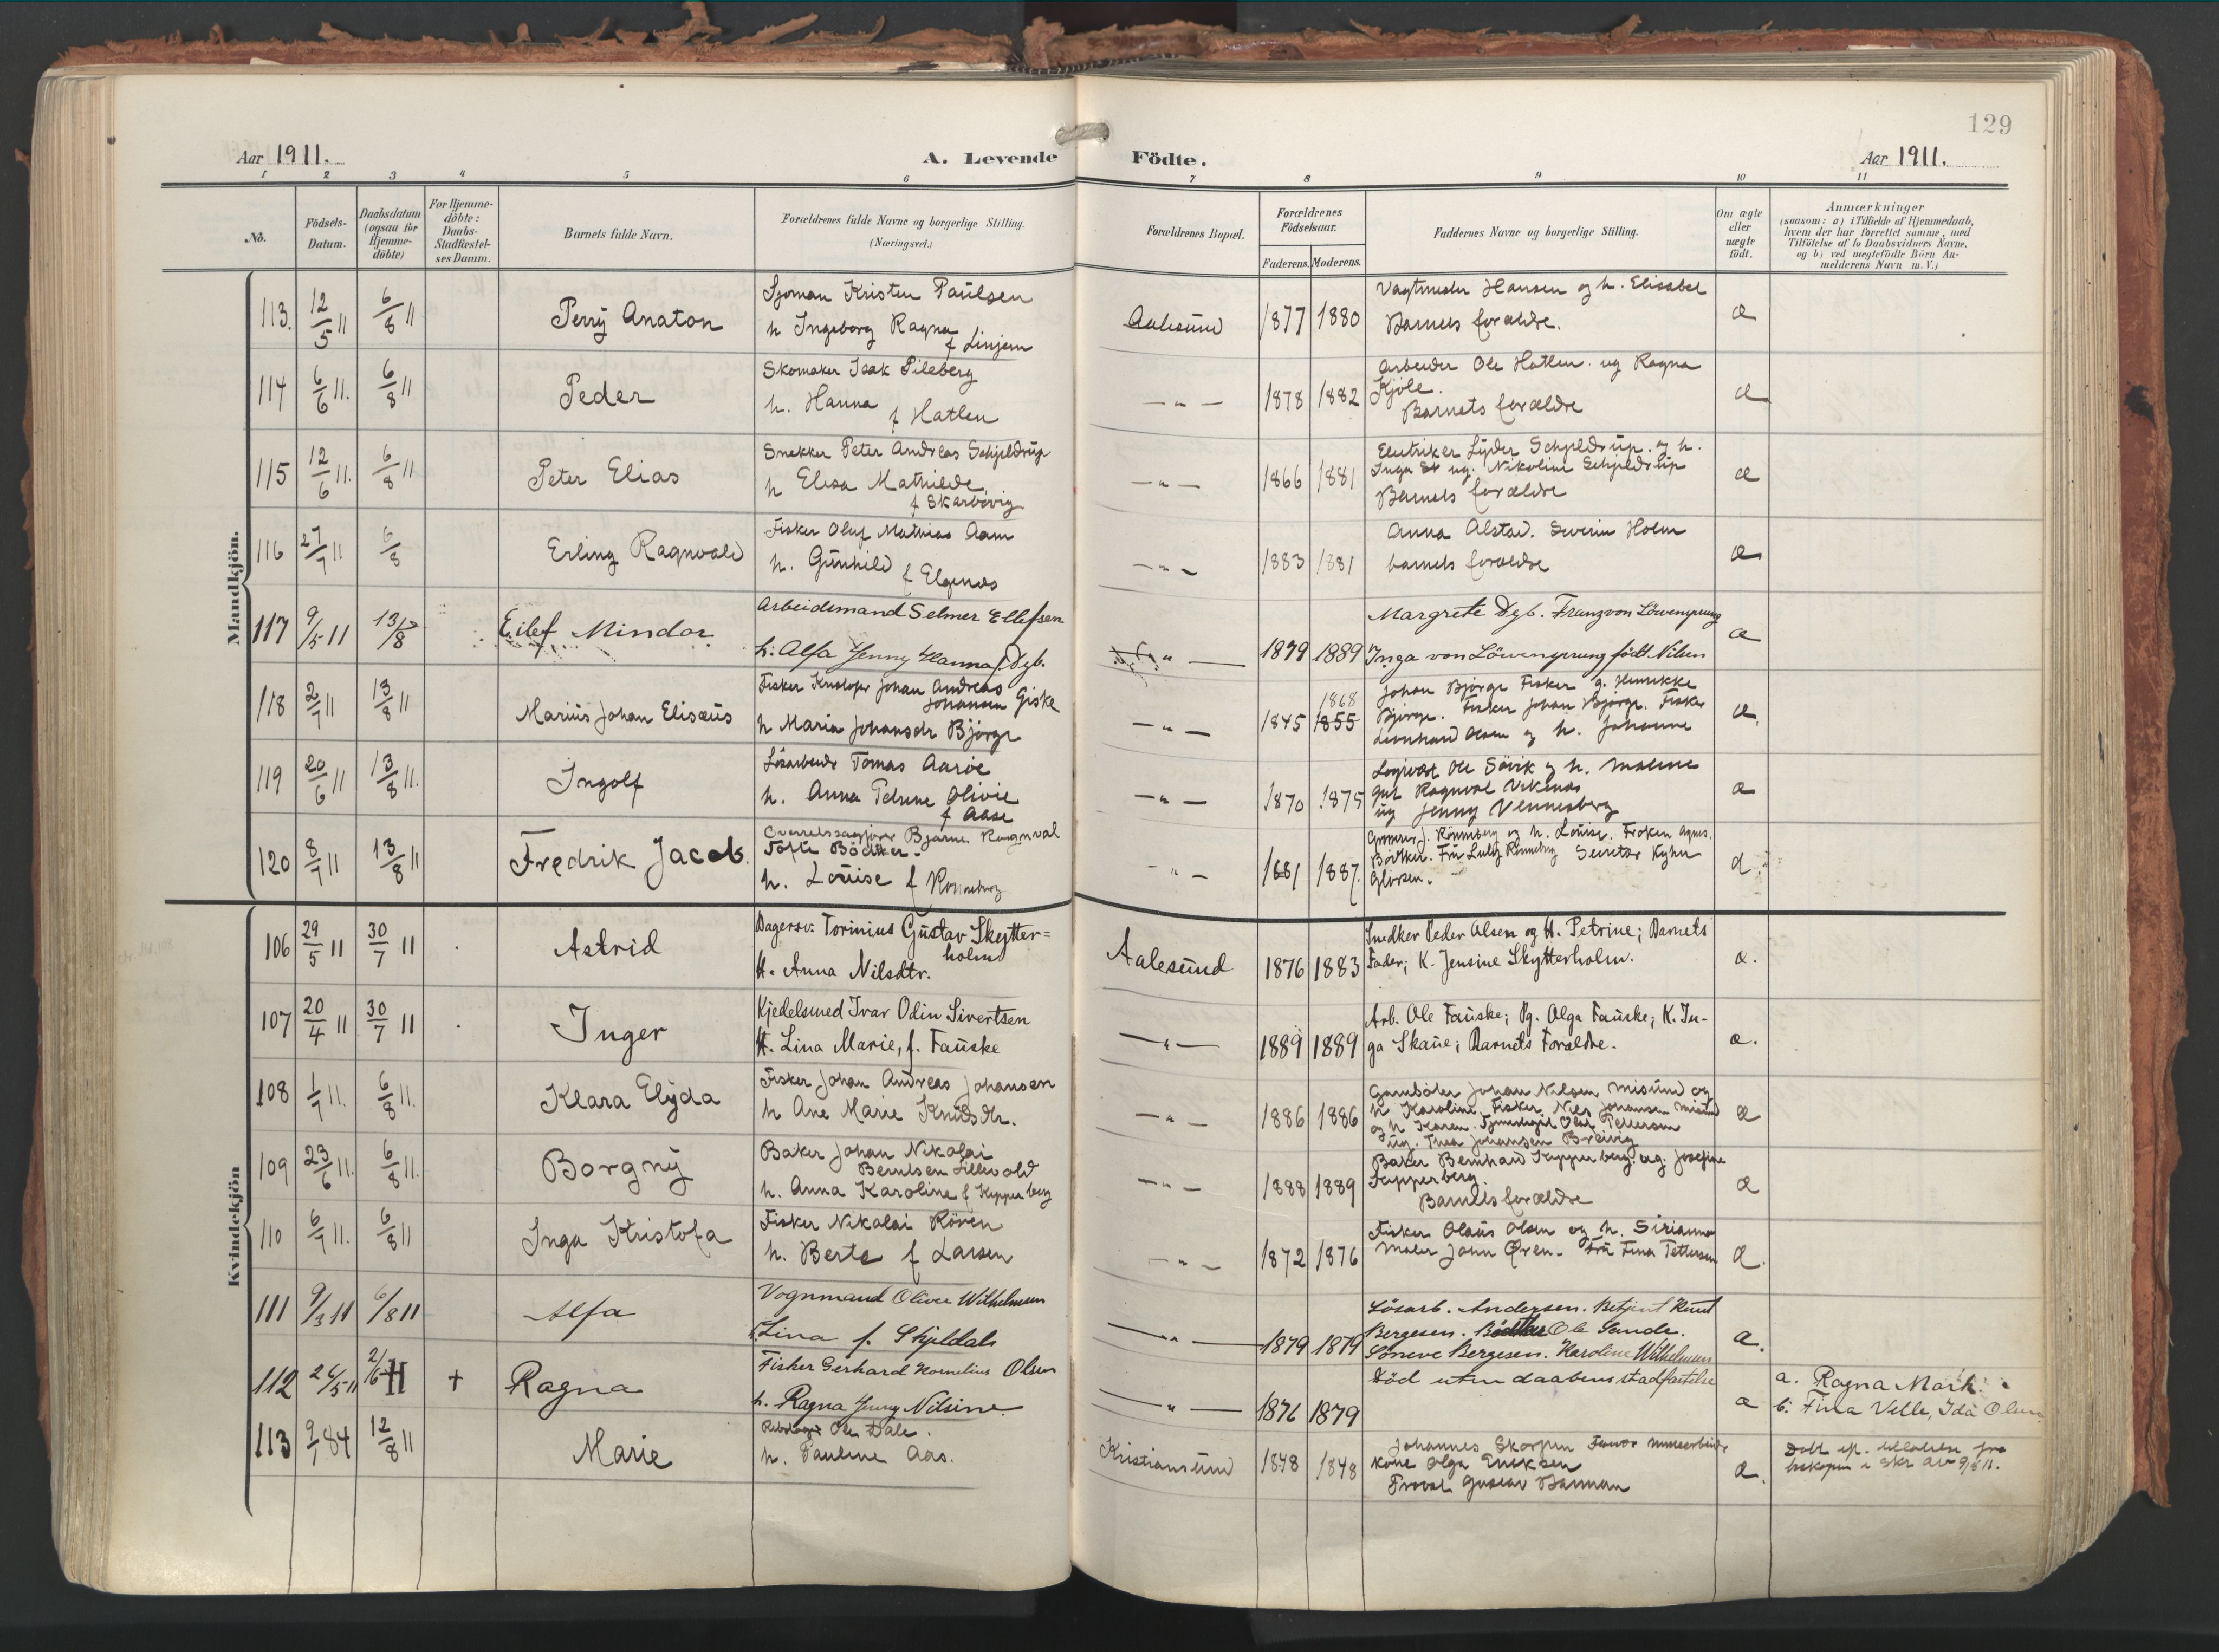 129
Aar 1911.
A. Levende Födte.
Aar 1911.
1 2 3 4 5 6 7 8 9 10 11
No.
Födsels-Datum.
Daabsdatum (ogsaa för Hjemme-döbte)
For Hjemme-döbte: Daabs-Stadfæstel-ses Datum.
Barnets fulde Navn.
Forældrenes fulde Navne og borgerlige Stilling. (Næringsvei.)
Forældrenes Bopæl.
Forældrenes Födselsaar.
Faderens. Moderens.
Faddernes Navne og borgerlige Stilling.
Om ægte eller uægte födt.
Anmærkninger
(saasom: a) i Tilfælde af Hjemmedaab, hvem der har forrettet samme, med Tilföielse af to Daabsvidners Navne, og b) ved uægtefödte Börn An-melderens Navn m. V.)
Mandkjön.
113. 12/5 11 6/8 11 Perry Anaton
Sjoman Kristen Paulsen
h Ingeborg Ragna
f Linjem
Aalesund 1877 1880
Vagtmester Hansen og h. Elisabet
Barnets forældre.
æ
114 6/6 11. 6/8 11 Peder
Skomaker Isak Pileberg
h. Hanna f Hatlen
— " — 1878 1882
Arbeider Ole Hatlen. ug Ragna
Kjöle.
Barnets forældre
æ
115 12/6 11. 6/8 11 Peter Elias
Snekker Peter Andreas Schjeldrup
h Elesa Mathilde
f Skarbövig
— " — 1866 1881
Electriker Lyder Schjeldrup. og h.
Inga ug. Nikoline Schjeldrup
Barnets forældre
æ
116 27/7 11 6/8 Erling Ragnvald
Fisker Oluf Mathias Aam
h. Gunhild f Elgenæs
— " — 1883 1881
Anna Alstad. Severin Holm
barnets forældre
æ
117 9/5 11 13/8 Eilef Mindor
Arbeidsmand Selmer Ellefsen
h. Alfa Jenny Hanna f Dyb.
" — 1879 1889
Margrete Dyb. Franz von Löwensprung
Inga von Löwensprung födt Nilsen
æ
118 2/7 11 13/8 11 Marius Johan Elisæus
Fisker Kristofer Johan Andreas
Johansen Giske
h Maria Johansdr Björge
— " — 1845 1868 1855
Johan Björge Fisker g. Henrikke
Björge. Fisker Johan Björge. Fisker
Leonhard Olsen og h. Johanne
æ.
119 20/6 11 13/8 11. Ingolf
Lösarbeider Tomas Aaröe
h. Anna Petrine Olivie
f Aase
— " — 1870 1875
Logivært Ole Sövik og h. Malene
gut Ragnval Viknæs
ug Jenny Vennesberg
æ
120 8/7 11 13/8 11 Fredrik Jacob.
Overretssagförer Bjarne Ragnval
Tofte Bödtker.
h. Louise f Rönneberg
— " — 1881 1887.
J. Rönneberg og h. Louise. Fröken Agnes.
Bödtker. Fru Rönneberg
æ.
Kvindekjön
106 29/5 11 30/7 11 Astrid
Dagarb: Torinius Gustav Skytter=
holm
H. Anna Nilsdtr.
Aalesund 1876 1883
Snedker Peder Alsen og H. Petrine; Barnets
Fader; K. Jensine Skytterholm.
æ.
107 20/4 11 30/7 11 Inger
Kjedelsmed Ivar Odin Sivertsen
H. Lina Marie, f. Fauske
— " — 1889 1889
Arb. Ole Fauske; Pg. Olga Fauske; K. In-
ga Skaue; Barnets Forældre.
æ.
108 1/7 11. 6/8 11. Klara Elyda
Fisker Johan Andreas Johansen
h Ane Marie Knudsdtr.
— " — 1886 1886
Garnböter Johan Nilsen Misund og
h Karoline. Fisker Nils Johansen Misund
og h Karen. Olaf Pettersen
ug. Thea Johansen Breivig
æ
109 23/6 11. 6/8 11. Borgny
Baker Johan Nikolai
Berntsen Lillevold
h. Anna Karoline f Kipperberg
— " — 1888 1889
Baker Bernhard Kipperberg. ug. Josefine
Kipperberg.
Barnets forældre
æ
110 6/7 11. 6/8 11 Inga Kristofa
Fisker Nikolai Röven
h. Berte f Larsen
— " — 1872 1876
Fisker Olaus Olsen og h. Sirianna
Maler John Ören. Fru Fina Pettersen
æ.
111 9/3 11 6/8 11 Alfa
Vognmand Oliver Wilhelmsen
h. Lina f. Skjeldals
— " — 1879 1879
Lösarb. Andersen. Betjent Knut
Bergesen. Ole Sande.
Söneve Bergesen. Karoline Wilhelmsen
æ.
112 26/5 11 2/6 11 + Ragna
Fisker Gerhard Kornelius Olsen
h. Ragna Jenny Nilsine.
— " — 1876 1879
Död uten daabens stadfæstelse
æ
a. Ragna Mork.
b. Fina Velle, Ida Olsen
113 9/1 84 12/8 11 Marie
Ole Dale.
h. Pauline Aas.
Kristiansund 1848 1848
Johannes Skorpen
kone Olga Eriksen
Gustav Barman
æ.
Döbt ef. tilladelse fra
biskopen i skr av 9/8 11.